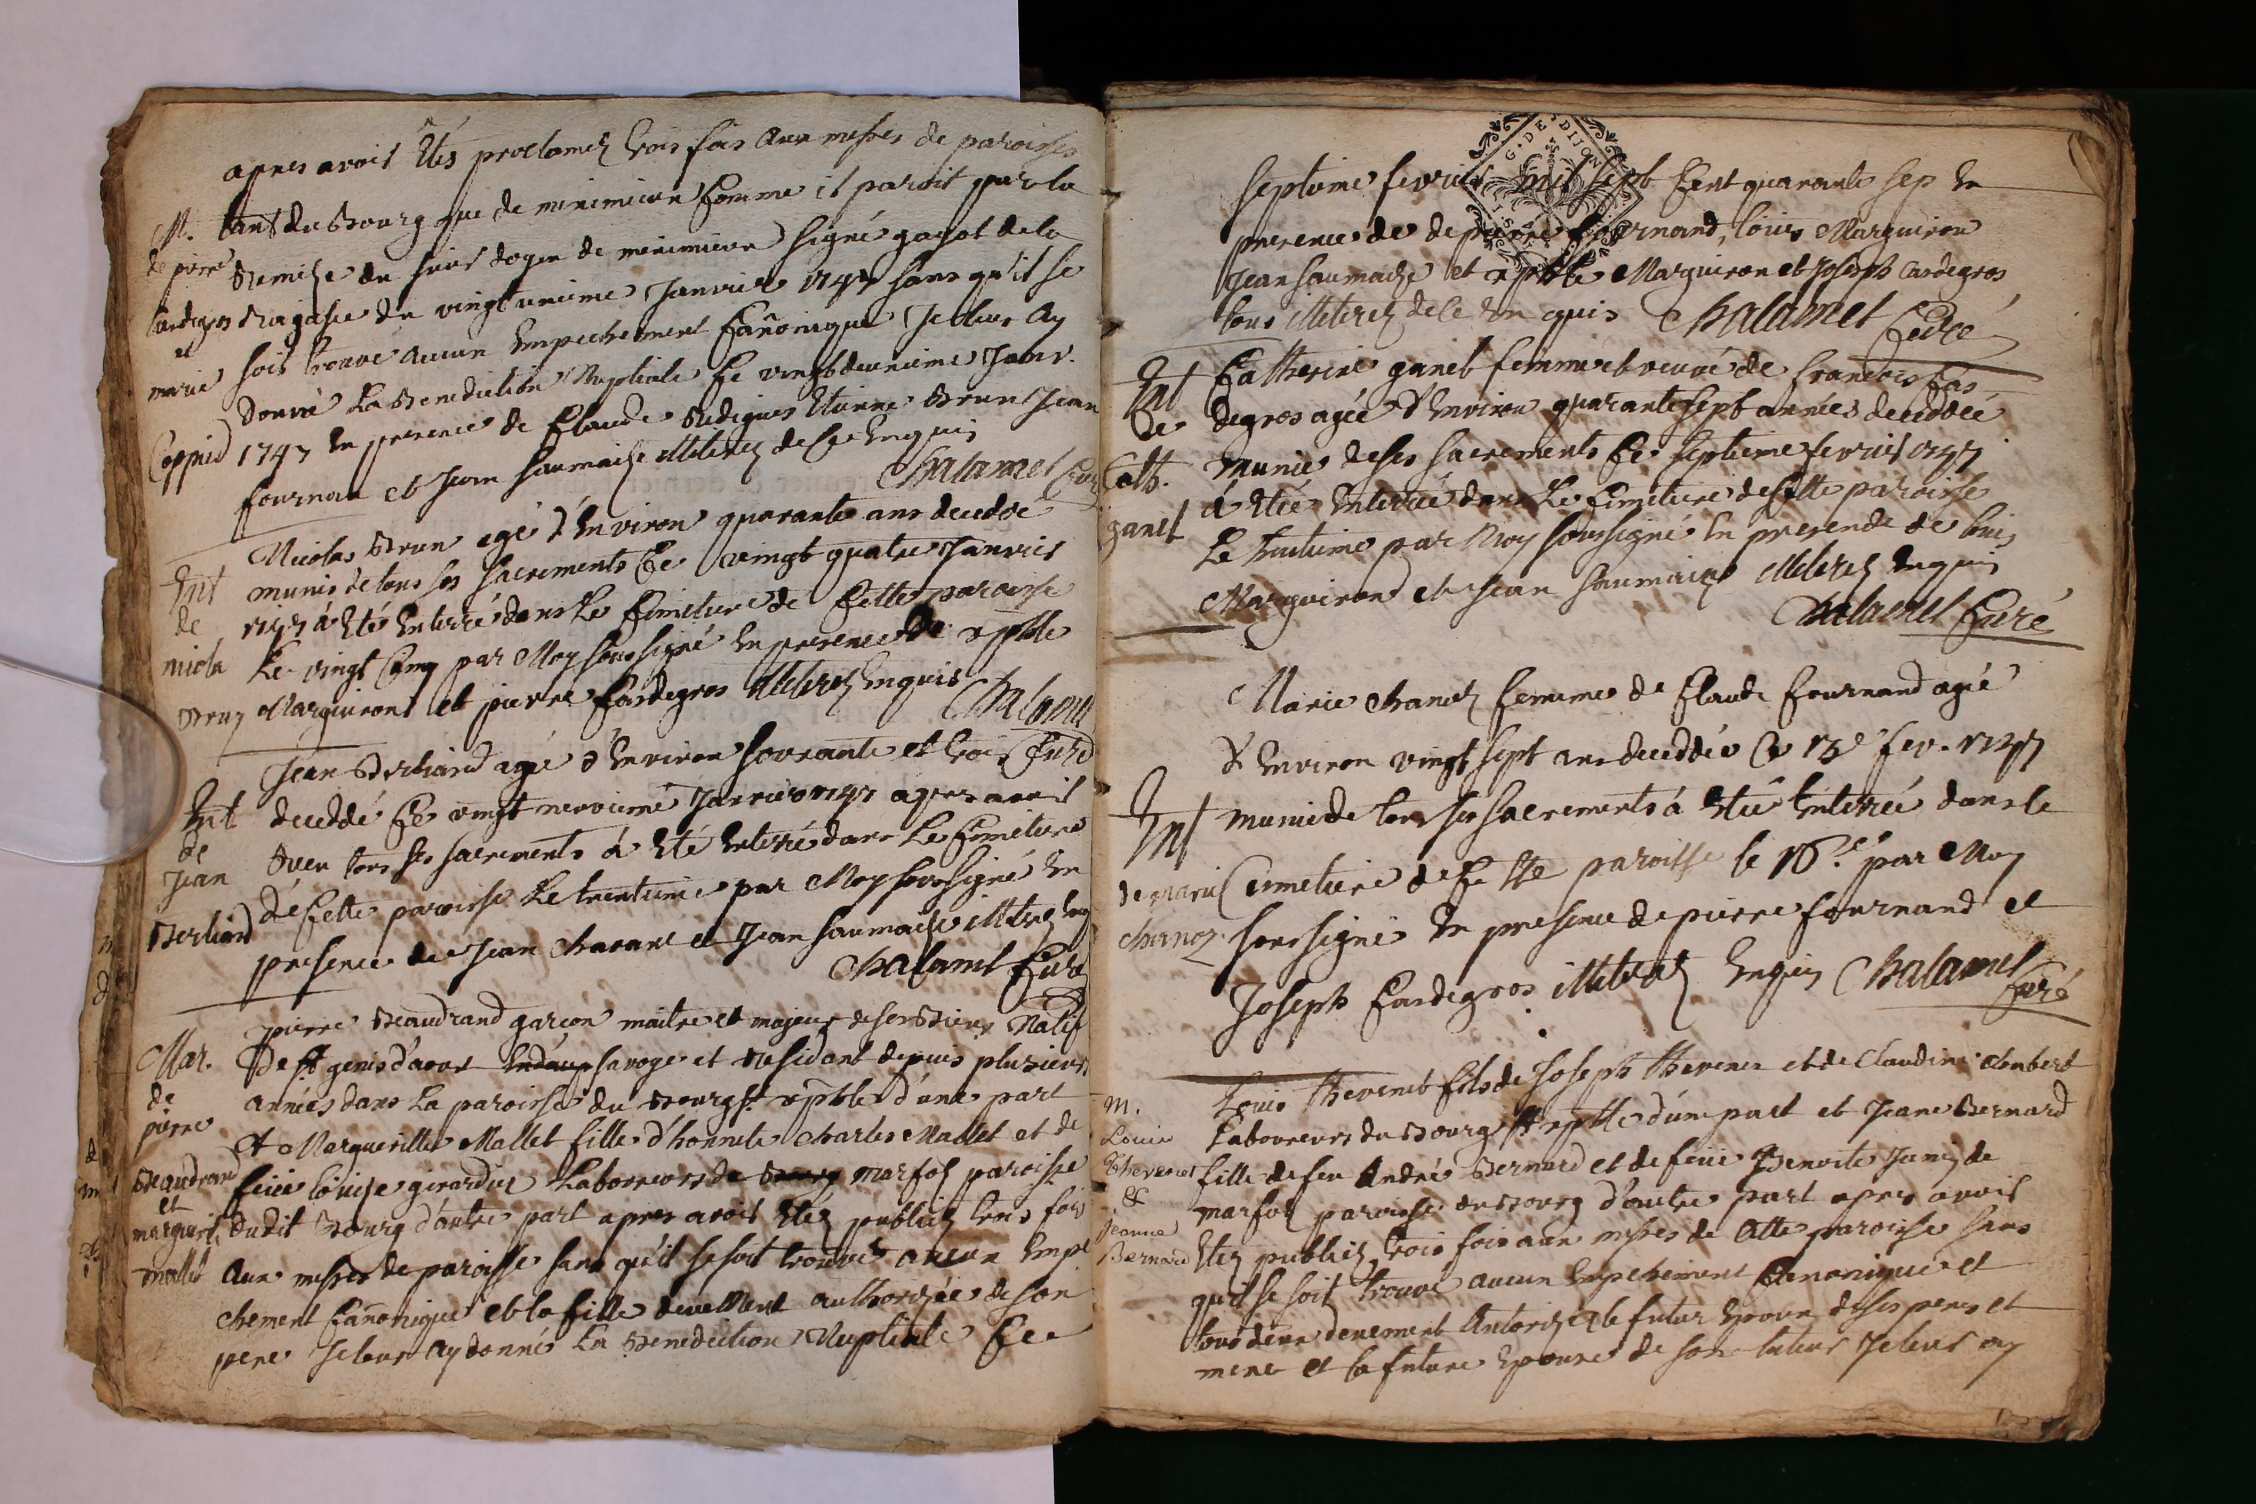 apres avoir Etés proclamez trois fois aux messes de paroisses
M. tant du Bourg que de mirimieux Comme il paroit par la
de pierre Remise du sieur doyen de mirimieux signé gayot de la
Cardegros du vingt unieme Janvier 1747 sans qu'il se
et
marie soit trouvé aucun Empechement Cañonique Je leur Ay
donné La Benediction Nuptiale Ce vingt deuxieme Janv.
1747 En presence de Claude Etienne Brun Jean
fournan et Jean Saumaize illiterez de ce Enquis
Chalamel Curé
Nicolas Brun agé d'Environ quarante ans deceddé
Ent munis de tous ses sacrements Ce vingt quatre Janvier
de 1747 a Eté Enterré dans Le Cimetiere de Cette paroisse
nicola Le vingt Cinq par Moy soussigné En presence de
Brun Marguiron et pierre Cardegros illiterez Enquis
Chalamel
Curé
Jean Berliand agé d'Environ soixante et trois
Ent deceddé Ce vingt neuvieme Janvier 1747 apres avoir
de
Jean tous ses sacrements a Eté Enterré dans Le Cimetiere
Berliand de Cette paroisse Le trentieme par Moy soussigné En
presence de Jean et Jean Saumaize illiterez Enq
Chalamel Curé
pierre Beaudrand garcon maitre et majeur de ses Biens Natif
Mar. De st genis d'aoust En savoye et Residant depuis plusieurs
de années dans La paroisse du Bourg st d'une part
pierre Et Margueritte Mallet fille d'honnete Charles Mallet et de
Beaudrand feüe loüise girardier Laboureurs de marfoz paroisse
et
marguerit, dudit Bourg d'autre part apres avoir Etéz publiez trois fois
mallet aux messes de paroisse sans qu'il se soit trouvé aucun Empe
chement Cañonique et la fille deuëment authorizée de son
pere Je leur ay donné La Benediction Nuptiale Ce
septieme fevrier mil sept Cent quarante sep En
presence de de pierre fournand, loüis Marguiron
Jean Saumaize et Marguiron et Joseph Cardegros
tous illiterez de ce En quis Chalamel Curé
Ent Catherine ganet femme et veuve de francois Car
de degros agée d'Environ quarante sept années deceddée
Cath. munie de ses sacrements Ce septieme fevrier 1747
ganet a Etée Enterrée dans Le Cimetiere de Cette paroisse
Le huitieme par Moy soussigné En presence de loüis
Marguiron et Jean Saumaize illiterez Enquis
Chalamel Curé
Marie Chanoz femme de Claude fournand agée
d'Environ vingt sept ans deceddée Ce 15e fev. 1747
Ent munie de tous ses sacrements a Etée Enterrée dans le
de marie Cimetiere de Cette paroisse le 16.e par Moy
Chanoz. soussigné En presence de pierre fournand et
Joseph Cardegros illiterez Enquis Chalamel
Curé
Louis thevenet fils de Joseph thevenet et de Claudine
m.
Louis Laboureurs du Bourg st d'une part et Jeane Bernard
thevenet fille de feu André Bernard et de feüe Benoite de
& marfoz paroisse du Bourg d'autre part apres avoir
jeanne
Bernard Etez publiez trois fois aux messes de Cette paroisse sans
qu'il se soit trouvé aucun Empechement Canonique et
tous deux deuement Autorizé le futur Epoux de ses pere et
mere et la future Epouse de son tuteur Je leur ay
G. DE DIJON